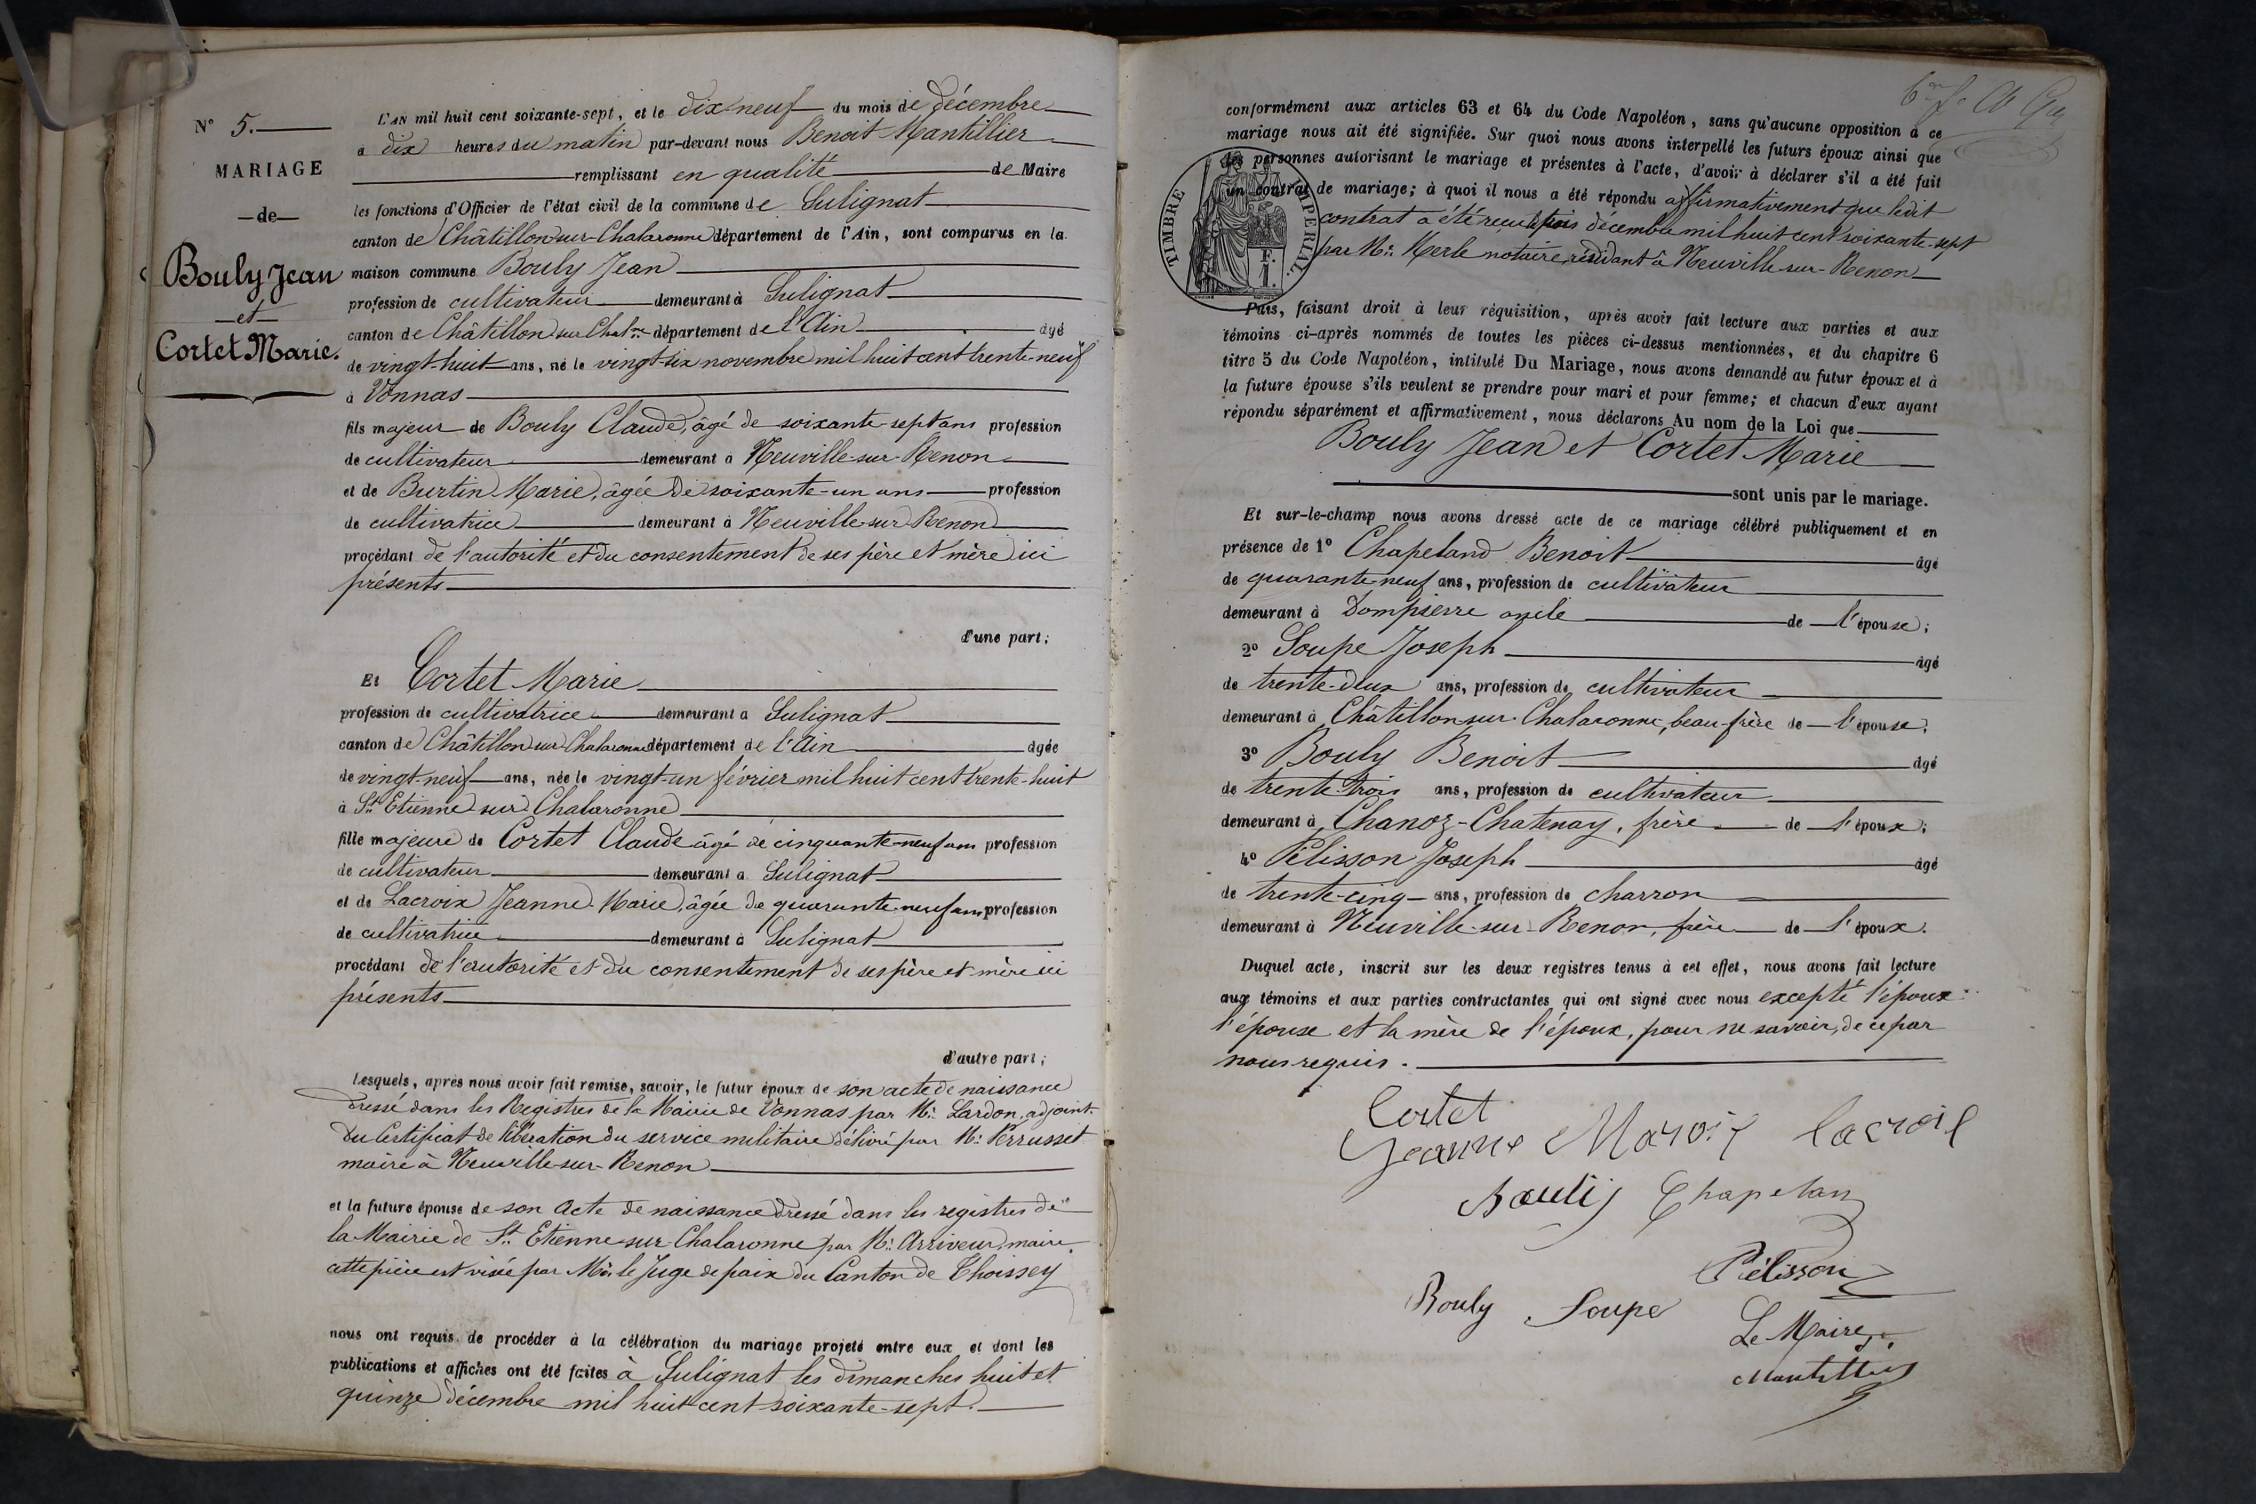 N° 5.
MARIAGE
—de—
Bouly Jean
—et—
Cortet Marie.
L'AN mil huit cent soixante-sept, et le dix-neuf du mois de décembre
a dix heures du matin par-devant nous Benoit Mantillier
remplissant en qualité de Maire
les fonctions d'Officier de l'état civil de la commune de Sulignat
canton de Châtillon-sur-Chalaronne département de l'Ain, sont comparus en la
maison commune Bouly Jean
profession de cultivateur demeurant à Sulignat
canton de Châtillon sur Chal.ne département de l'Ain âgé
de vingt-huit ans, né le vingt-six novembre mil huit cent trente-neuf
à Vonnas
fils majeur de Bouly Claude, âgé de soixante-sept ans profession
de cultivateur demeurant a Neuville-sur-Renon
et de Burtin Marie, âgée de soixante-un ans profession
de cultivatrice demeurant à Neuville-sur Renon
procédant de l'autorité et du consentement de ses père et mère ici
présents
d'une part;
Et Cortet Marie
profession de cultivatrice demeurant a Sulignat
canton de Châtillon sur Chalaronne département de l'Ain âgée
de vingt-neuf ans, née le vingt-un février mil huit cent trente-huit
à St. Etienne sur Chalaronne
fille majeure de Cortet Claude âgé de cinquante-neuf ans profession
de cultivateur demeurant a Sulignat
et de Lacroix Jeanne-Marie, âgée de quarante-neuf ans profession
de cultivatrice demeurant à Sulignat
procédant de l'autorité et du consentement de ses père et mère ici
présents
d'autre part;
Lesquels, après nous avoir fait remise, savoir, le futur époux de son acte de naissance
dressé dans les Registres de la Mairie de Vonnas par Mr. Lardon, adjoint.
Du Certificat de libération du service militaire délivré par Mr. Perrusset
maire à Neuville-sur-Renon
et la future épouse de son acte de naissance dressé dans les registres de
la Mairie de St. Etienne-sur-Chalaronne par Mr. Arriveur, maire,
cette pièce est visée par Mr. le Juge de paix du Canton de Thoissey
nous ont requis de procéder à la célébration du mariage projeté entre eux et dont les
publications et affiches ont été faites à Sulignat les dimanches huit et
quinze décembre mil huit cent soixante-sept.
conformément aux articles 63 et 64 du Code Napoléon, sans qu'aucune opposition à ce
mariage nous ait été signifiée. Sur quoi nous avons interpellé les futurs époux ainsi que
les personnes autorisant le mariage et présentes à l'acte, d'avoir à déclarer s'il a été fait
un contrat de mariage; à quoi il nous a été répondu affirmativement que ledit
contrat a été reçu le trois décembre mil huit cent soixante-sept
par Mr. Merle notaire, résidant à Neuville-sur-Renon
TIMBRE IMPERIAL.
F.
1.
Puis, faisant droit à leur réquisition, après avoir fait lecture aux parties et aux
témoins ci-après nommés de toutes les pièces ci-dessus mentionnées, et du chapitre 6
titre 5 du Code Napoléon, intitulé Du Mariage, nous avons demandé au futur époux et à
la future épouse s'ils veulent se prendre pour mari et pour femme; et chacun d'eux ayant
répondu séparément et affirmativement, nous déclarons Au nom de la Loi que
Bouly Jean et Cortet Marie
sont unis par le mariage.
Et sur-le-champ nous avons dressé acte de ce mariage célébré publiquement et en
présence de 1° Chapeland Benoit âgé
de quarante-neuf ans, profession de cultivateur
demeurant à Dompierre oncle de l'épouse;
2° Soupe Joseph âgé
de trente-deux ans, profession de cultivateur
demeurant à Châtillon sur Chalaronne, beau-frère de l'épouse;
3° Bouly Benoit âgé
de trente-trois ans, profession de cultivateur
demeurant à Chanoz-Chatenay, frère de l'époux;
4° Pélisson Joseph âgé
de trente-cinq ans, profession de charron
demeurant à Neuville-sur-Renon, frère de l'époux.
Duquel acte, inscrit sur les deux registres tenus à cet effet, nous avons fait lecture
aux témoins et aux parties contractantes qui ont signé avec nous excepté l'époux
l'épouse et la mère de l'époux, pour ne savoir, de ce par
nous requis.
Cortet
Jeanne Maroix lacroix
Bouly Chapelan
Pélisson
Bouly Soupe
Le Maire,
Mantillier